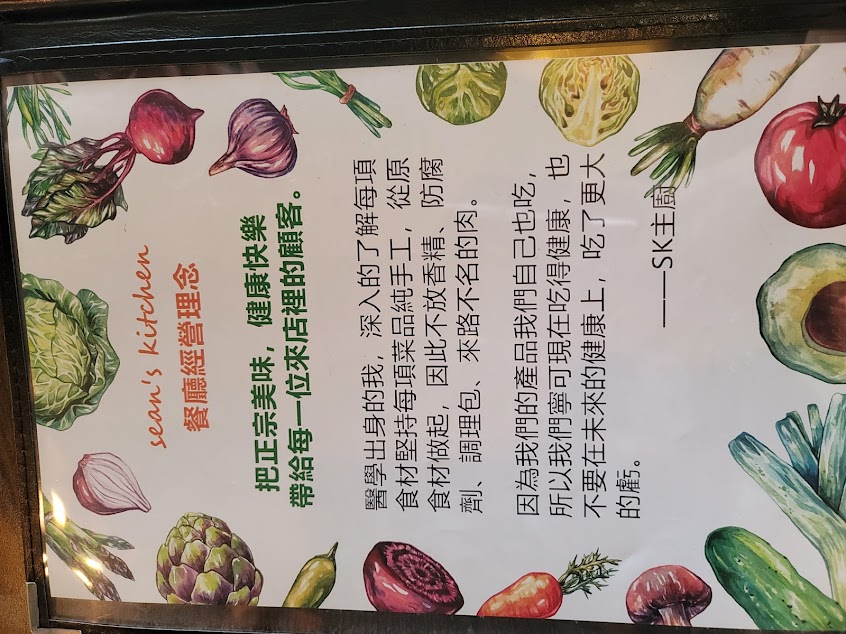 sean's kitchen
餐廳經營理念
把正宗美味，健康快樂
帶給每一位來店裡的顧客。
醫學出身的我，深入的了解每項
食材堅持每項菜品純手工，從原
食材做起，因此不放香精、防腐
劑、調理包、來路不名的肉。
因為我們的產品我們自己也吃，
所以我們寧可現在吃得健康，也
不要在未來的健康上，吃了更大
的虧。
——SK主廚